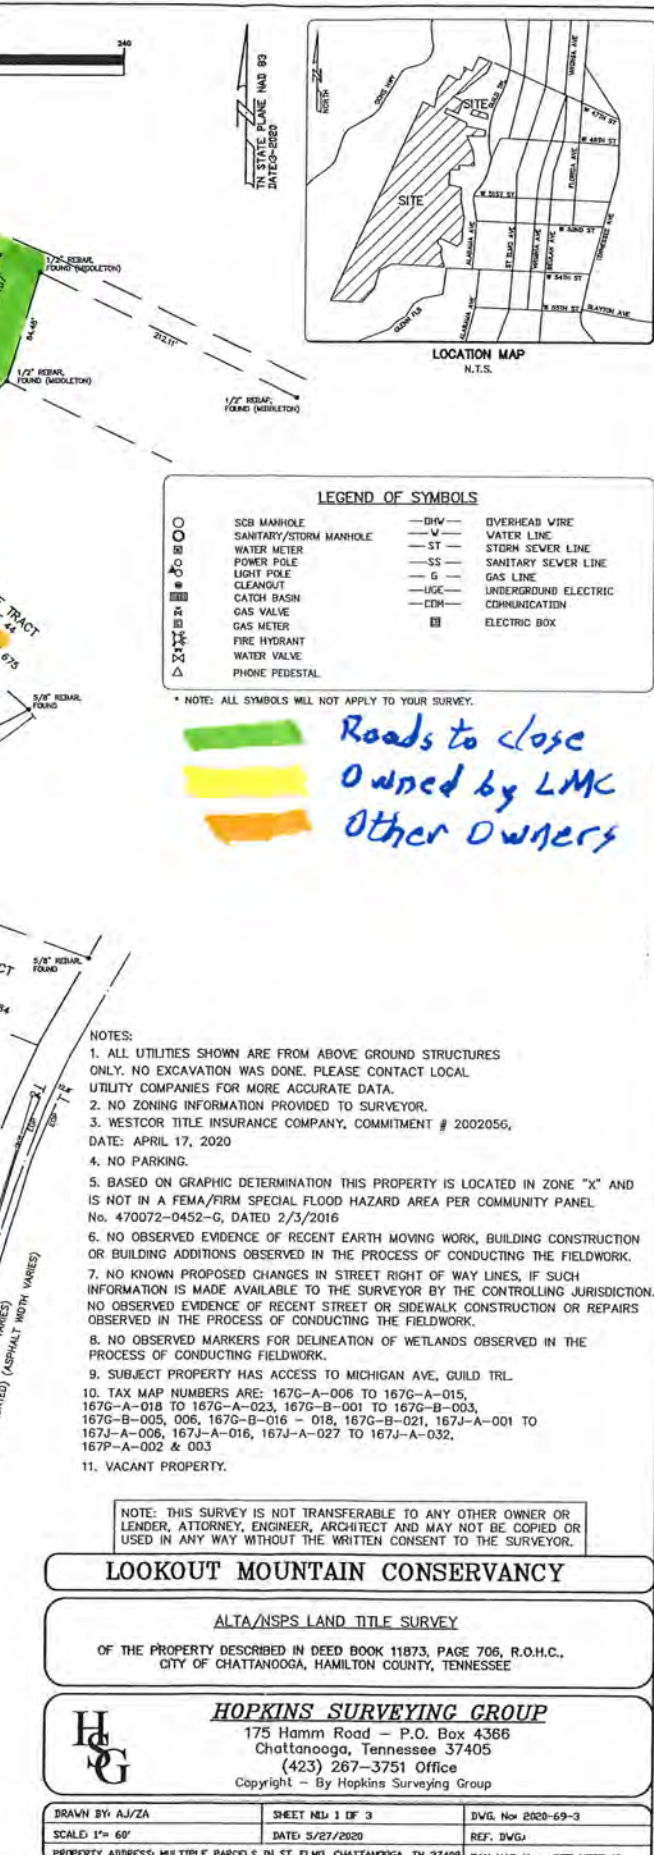 240
TN STATE PLANE NAD 83
DATE:3-2020
NORTH
OCHS HWY
SITE
GUILD TRL
VIRGINIA AVE
W 47TH ST
W 48TH ST
FLORIDA AVE
SITE
W 51ST ST
ALABAMA AVE
ST ELMO AVE
VIRGINIA AVE
BEULAH AVE
W 53RD ST
TENNESSEE AVE
W 54TH ST
W 55TH ST
SLAYTON AVE
GLENN FLS
ALABAMA AVE
LOCATION MAP
N.T.S.
1/2" REBAR,
FOUND (MIDDLETON)
84.48'
212.11'
1/2" REBAR,
FOUND (MIDDLETON)
1/2" REBAR,
FOUND (MIDDLETON)
LEGEND OF SYMBOLS
SCB MANHOLE
SANITARY/STORM MANHOLE
WATER METER
POWER POLE
LIGHT POLE
CLEANOUT
CATCH BASIN
GAS VALVE
GAS METER
FIRE HYDRANT
WATER VALVE
PHONE PEDESTAL
—OHW— OVERHEAD WIRE
—W— WATER LINE
— ST — STORM SEWER LINE
—SS — SANITARY SEWER LINE
— G — GAS LINE
—UGE— UNDERGROUND ELECTRIC
—COM— COMMUNICATION
E ELECTRIC BOX
* NOTE: ALL SYMBOLS WILL NOT APPLY TO YOUR SURVEY.
TRACT
44
675
5/8" REBAR,
FOUND
Roads to close
Owned by LMC
Other Owners
5/8" REBAR,
FOUND
CT
NOTES:
1. ALL UTILITIES SHOWN ARE FROM ABOVE GROUND STRUCTURES
ONLY. NO EXCAVATION WAS DONE. PLEASE CONTACT LOCAL
UTILITY COMPANIES FOR MORE ACCURATE DATA.
2. NO ZONING INFORMATION PROVIDED TO SURVEYOR.
3. WESTCOR TITLE INSURANCE COMPANY, COMMITMENT # 2002056,
DATE: APRIL 17, 2020
4. NO PARKING.
5. BASED ON GRAPHIC DETERMINATION THIS PROPERTY IS LOCATED IN ZONE "X" AND
IS NOT IN A FEMA/FIRM SPECIAL FLOOD HAZARD AREA PER COMMUNITY PANEL
No. 470072-0452-G, DATED 2/3/2016
6. NO OBSERVED EVIDENCE OF RECENT EARTH MOVING WORK, BUILDING CONSTRUCTION
OR BUILDING ADDITIONS OBSERVED IN THE PROCESS OF CONDUCTING THE FIELDWORK.
7. NO KNOWN PROPOSED CHANGES IN STREET RIGHT OF WAY LINES, IF SUCH
INFORMATION IS MADE AVAILABLE TO THE SURVEYOR BY THE CONTROLLING JURISDICTION.
NO OBSERVED EVIDENCE OF RECENT STREET OR SIDEWALK CONSTRUCTION OR REPAIRS
OBSERVED IN THE PROCESS OF CONDUCTING THE FIELDWORK.
8. NO OBSERVED MARKERS FOR DELINEATION OF WETLANDS OBSERVED IN THE
PROCESS OF CONDUCTING FIELDWORK.
9. SUBJECT PROPERTY HAS ACCESS TO MICHIGAN AVE, GUILD TRL.
10. TAX MAP NUMBERS ARE: 167G-A-006 TO 167G-A-015,
167G-A-018 TO 167G-A-023, 167G-B-001 TO 167G-B-003,
167G-B-005, 006, 167G-B-016 - 018, 167G-B-021, 167J-A-001 TO
167J-A-006, 167J-A-016, 167J-A-027 TO 167J-A-032,
167P-A-002 & 003
11. VACANT PROPERTY.
(ASPHALT WIDTH VARIES)
NOTE: THIS SURVEY IS NOT TRANSFERABLE TO ANY OTHER OWNER OR
LENDER, ATTORNEY, ENGINEER, ARCHITECT AND MAY NOT BE COPIED OR
USED IN ANY WAY WITHOUT THE WRITTEN CONSENT TO THE SURVEYOR.
LOOKOUT MOUNTAIN CONSERVANCY
ALTA/NSPS LAND TITLE SURVEY
OF THE PROPERTY DESCRIBED IN DEED BOOK 11873, PAGE 706, R.O.H.C.,
CITY OF CHATTANOOGA, HAMILTON COUNTY, TENNESSEE
HSG
HOPKINS SURVEYING GROUP
175 Hamm Road - P.O. Box 4366
Chattanooga, Tennessee 37405
(423) 267-3751 Office
Copyright - By Hopkins Surveying Group
DRAWN BY: AJ/ZA SHEET NO.: 1 OF 3 DWG. No: 2020-69-3
SCALE: 1"= 60' DATE: 5/27/2020 REF. DWG.:
PROPERTY ADDRESS: MULTIPLE PARCELS IN ST. ELMO, CHATTANOOGA, TN 37409